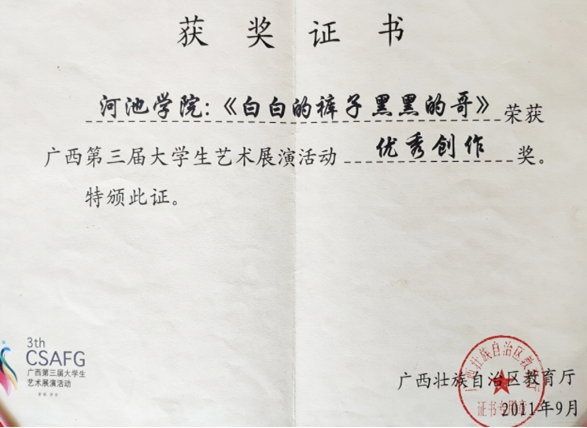 获奖证书
河池学院：《白白的裤子黑黑的哥》荣获
广西第三届大学生艺术展演活动 优秀创作 奖。
特颁此证。
3th
CSAFG
广西第三届大学生
艺术展演活动
广西壮族自治区教育厅
广西壮族自治区教育厅
2011年9月